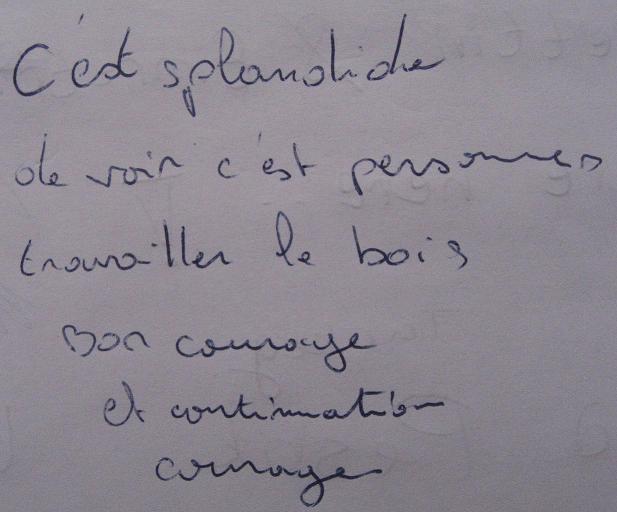 C'est splandide
de voir c'est personnes
travailler le bois
Bon courage
et continuation
courage